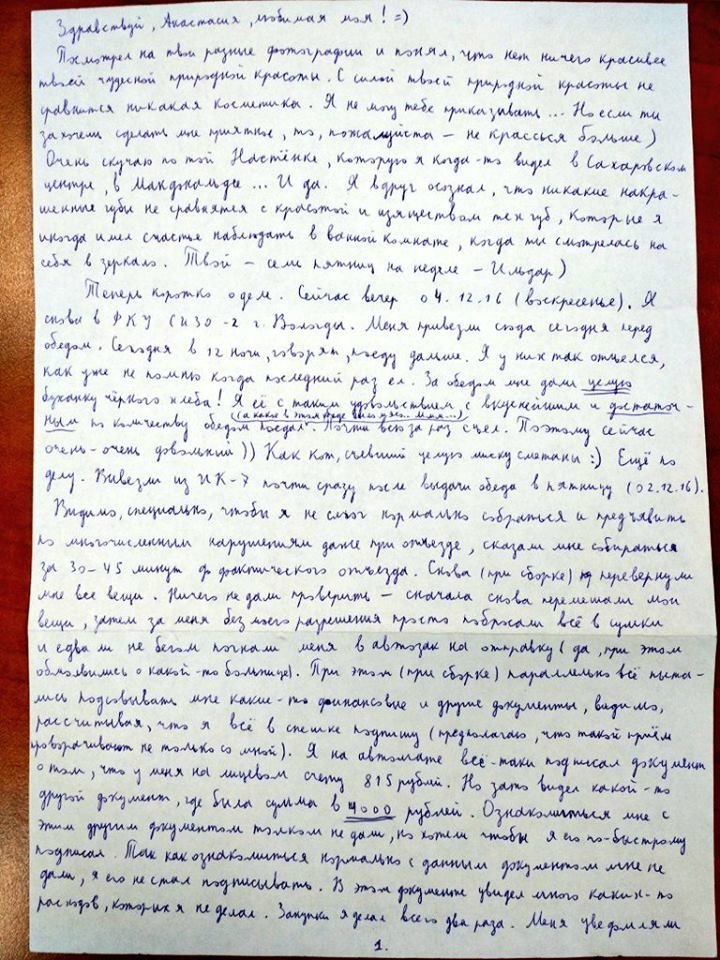 Здравствуй, Анастасия, любимая моя! =)
Посмотрел на твои разные фотографии и понял, что нет ничего красивее
твоей чудесной природной красоты. С силой твоей природной красоты не
сравнится никакая косметика. Я не могу тебе приказывать... Но если ты
захочешь сделать мне приятное, то, пожалуйста – не крассься больше)
Очень скучаю по той Настёнке, которую я когда-то видел в Сахаровском
центре, в Макдональдсе... И да. Я вдруг осознал, что никакие накра-
шенные губы не сравнятся с красотой и изяществом тех губ, которые я
иногда имел счастье наблюдать в ванной комнате, когда ты смотрелась на
себя в зеркало. Твой – семь пятниц на неделе – Ильдар)
Теперь коротко о деле. Сейчас вечер 04.12.16 (воскресенье). Я
снова в ФКУ СИЗО-2 г. Вологды. Меня привезли сюда сегодня перед
обедом. Сегодня в 12 ночи, говорят, поеду дальше. Я у них так отъелся,
как уже не помню когда последний раз ел. За обедом мне дали целую
буханку чёрного хлеба! Я её с таким удовольствием с вкуснейшим и достаточ-
ным по количеству обедом поедал. Почти всю за раз съел. Поэтому сейчас
очень-очень довольный)) Как кот, съевший целую миску сметаны :) Ещё по
делу. Вывезли из ИК-7 почти сразу после выдачи обеда в пятницу (02.12.16).
Видимо, специально, чтобы я не смог нормально собраться и предъявить
по многочисленным нарушениям даже при отъезде, сказали мне собираться
за 30-45 минут до фактического отъезда. Снова (при сборке) перевернули
мне все вещи. Ничего не дали проверить – сначала снова перемешали мои
вещи, затем за меня без моего разрешения просто побросали всё в сумки
и едва ли не бегом погнали меня в автозак на отправку (да, при этом
обмолвились о какой-то больнице). При этом (при сборке) параллельно всё пыта-
лись подсовывать мне какие-то финансовые и другие документы, видимо,
рассчитывая, что я всё в спешке подпишу (предполагаю, что такой приём
проворачивают не только со мной). Я на автомате всё-таки подписал документ
о том, что у меня на лицевом счету 815 рублей. Но зато видел какой-то
другой документ, где была сумма в 4000 рублей. Ознакомиться мне с
этим другим документом толком не дали, но хотели чтобы я его по-быстрому
подписал. Так как ознакомиться нормально с данным документом мне не
дали, я его не стал подписывать. В этом документе увидел много каких-то
расходов, которых я не делал. Закупки я делал всего два раза. Меня уведомляли
1.